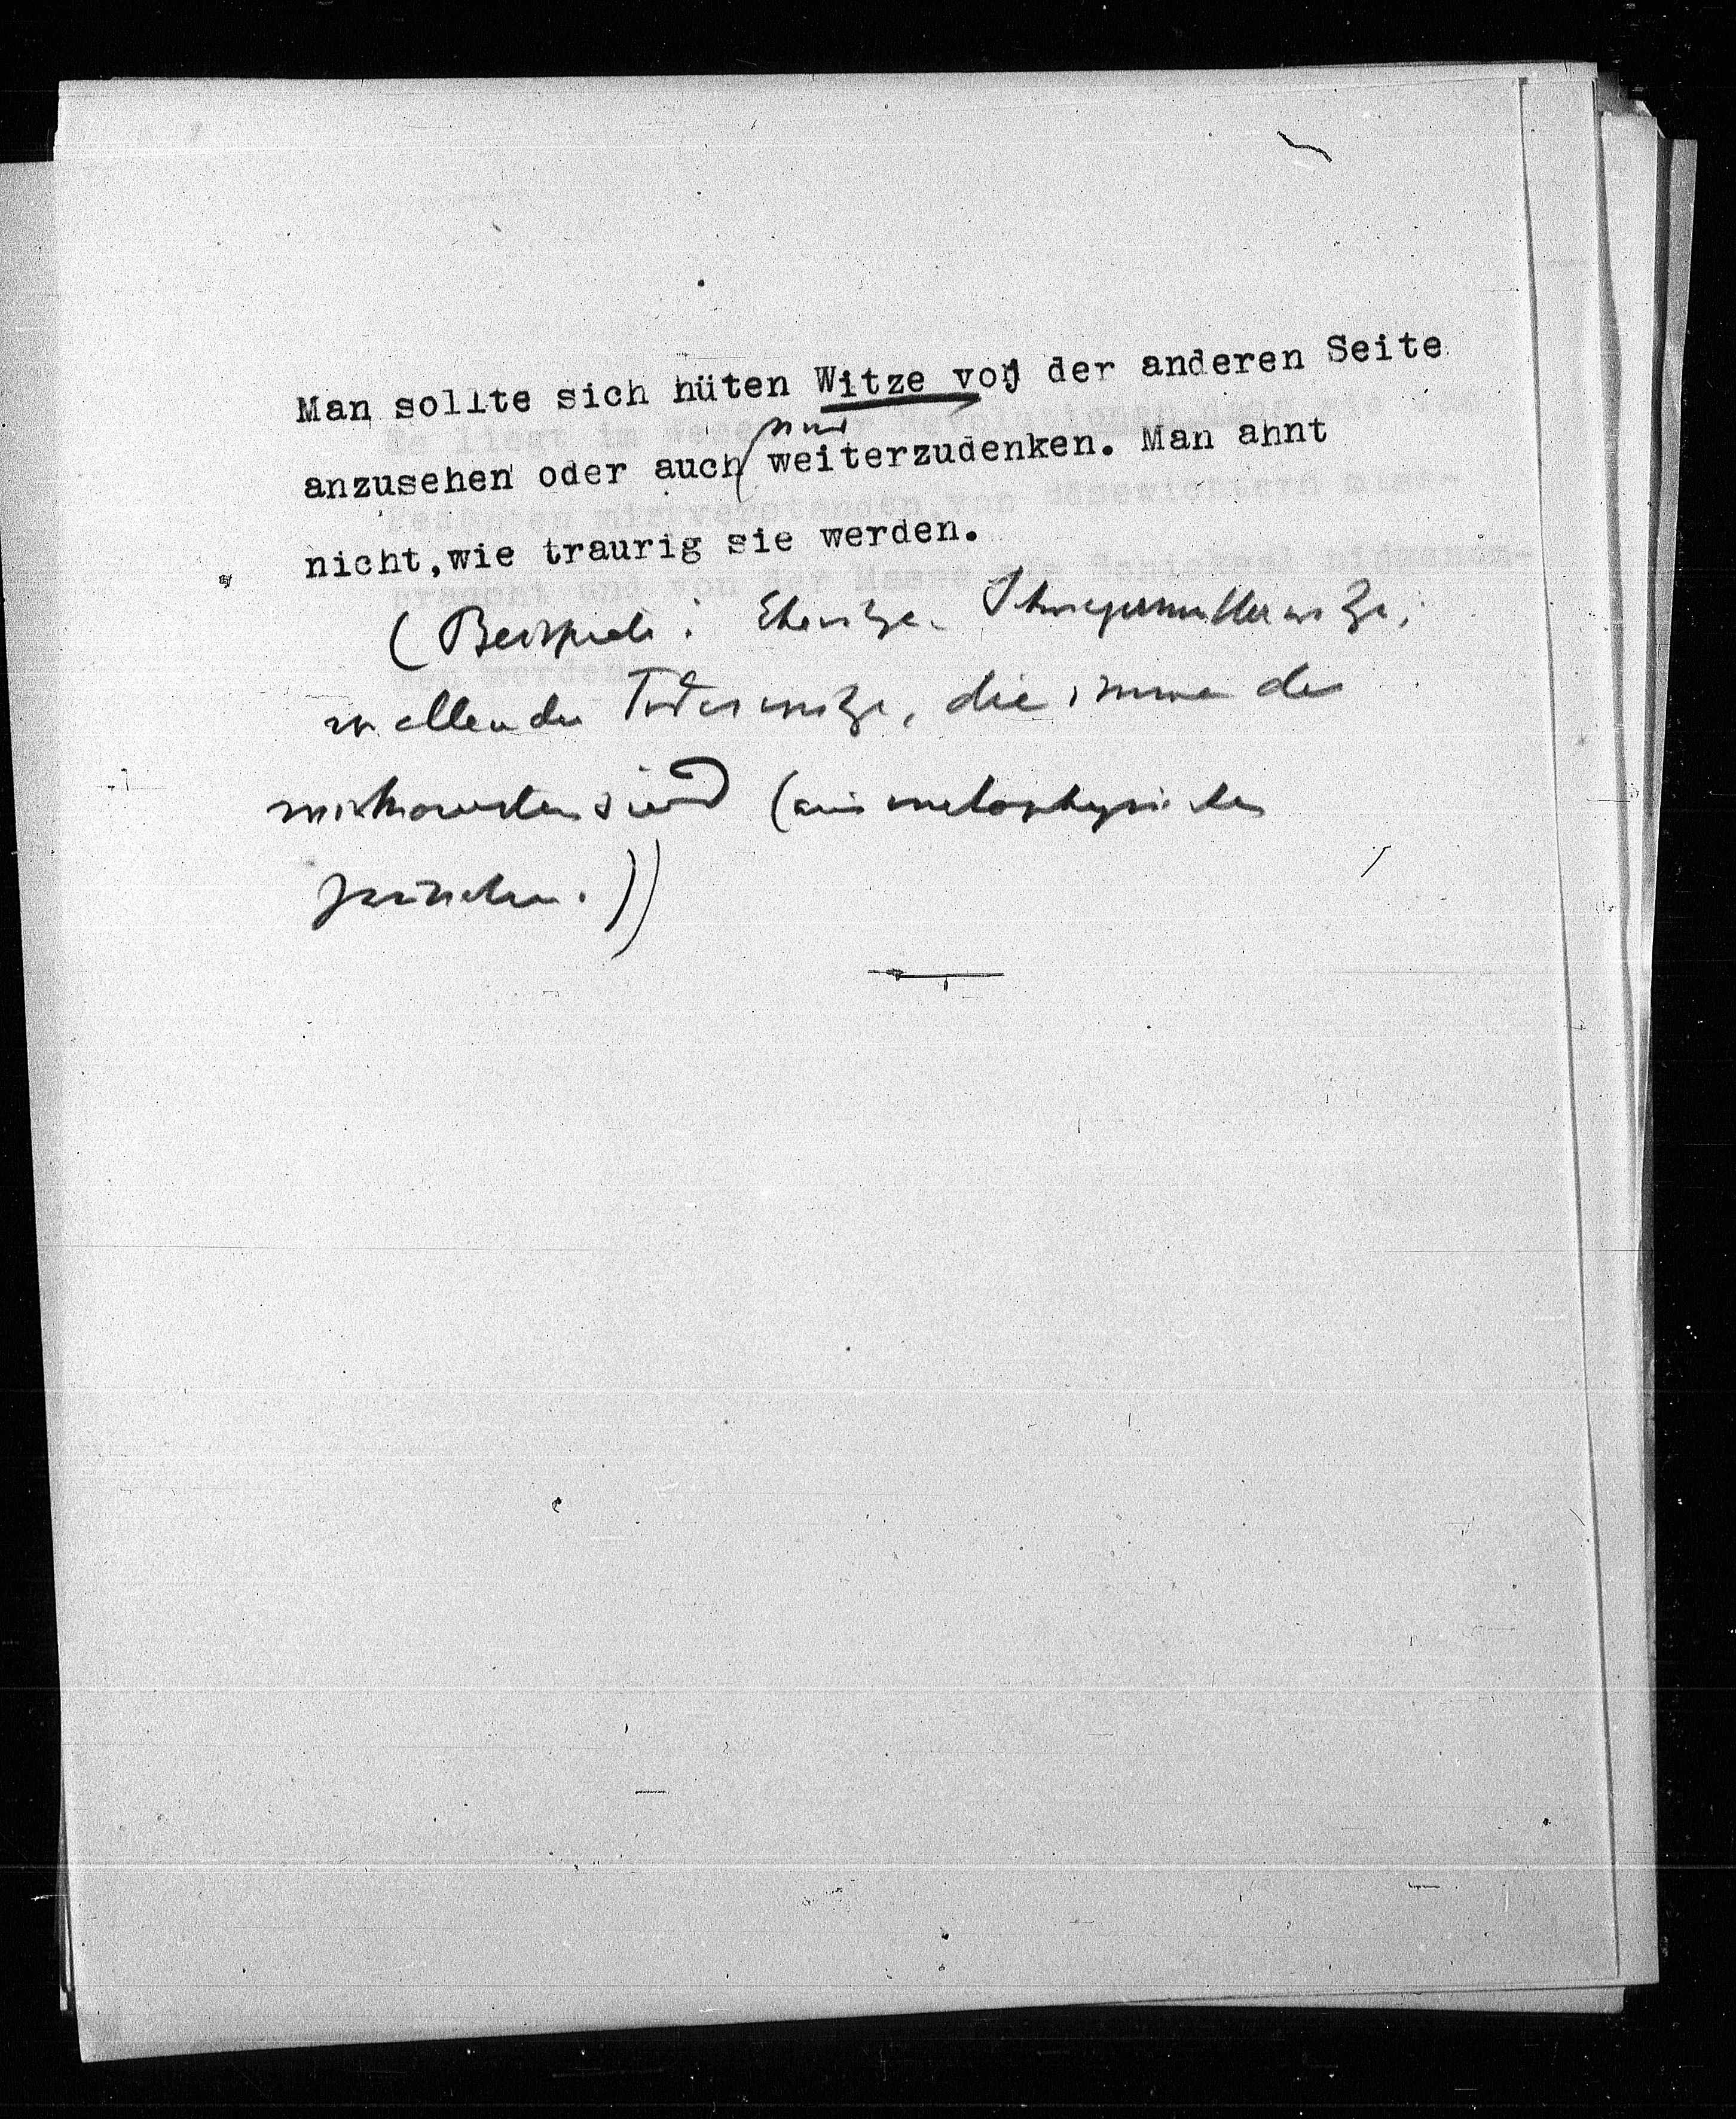 Man sollte sich hüten Witze von der anderen Seite
anzusehen oder auch nur weiterzudenken. Man ahnt
nicht,wie traurig sie werden.
(Beispiele: Ehewitze. Schwiegermutterwitze,
vor allem die Todeswitze, die immer die
sind (aus metaphysischen
Gründen.))